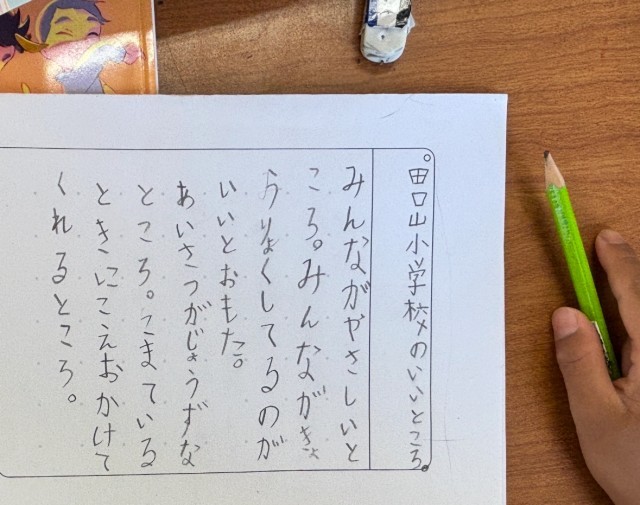 田口山小学校のいいところ
みんながやさしいと
ころ。みんながきょ
うりょくしてるのが
いいとおもた。
あいさつがじょうずな
ところ。こまている
ときにこえおかけて
くれるところ。